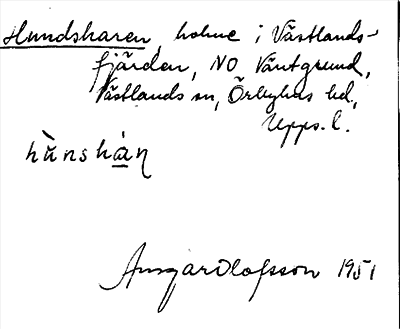 Hundsharen, holme i Västlands-
fjärden, NO Väntgrund,
Västlands sn, Örbyhus hd,
Upps. l.
hùnshàn
Ansgar Olofsson 1951